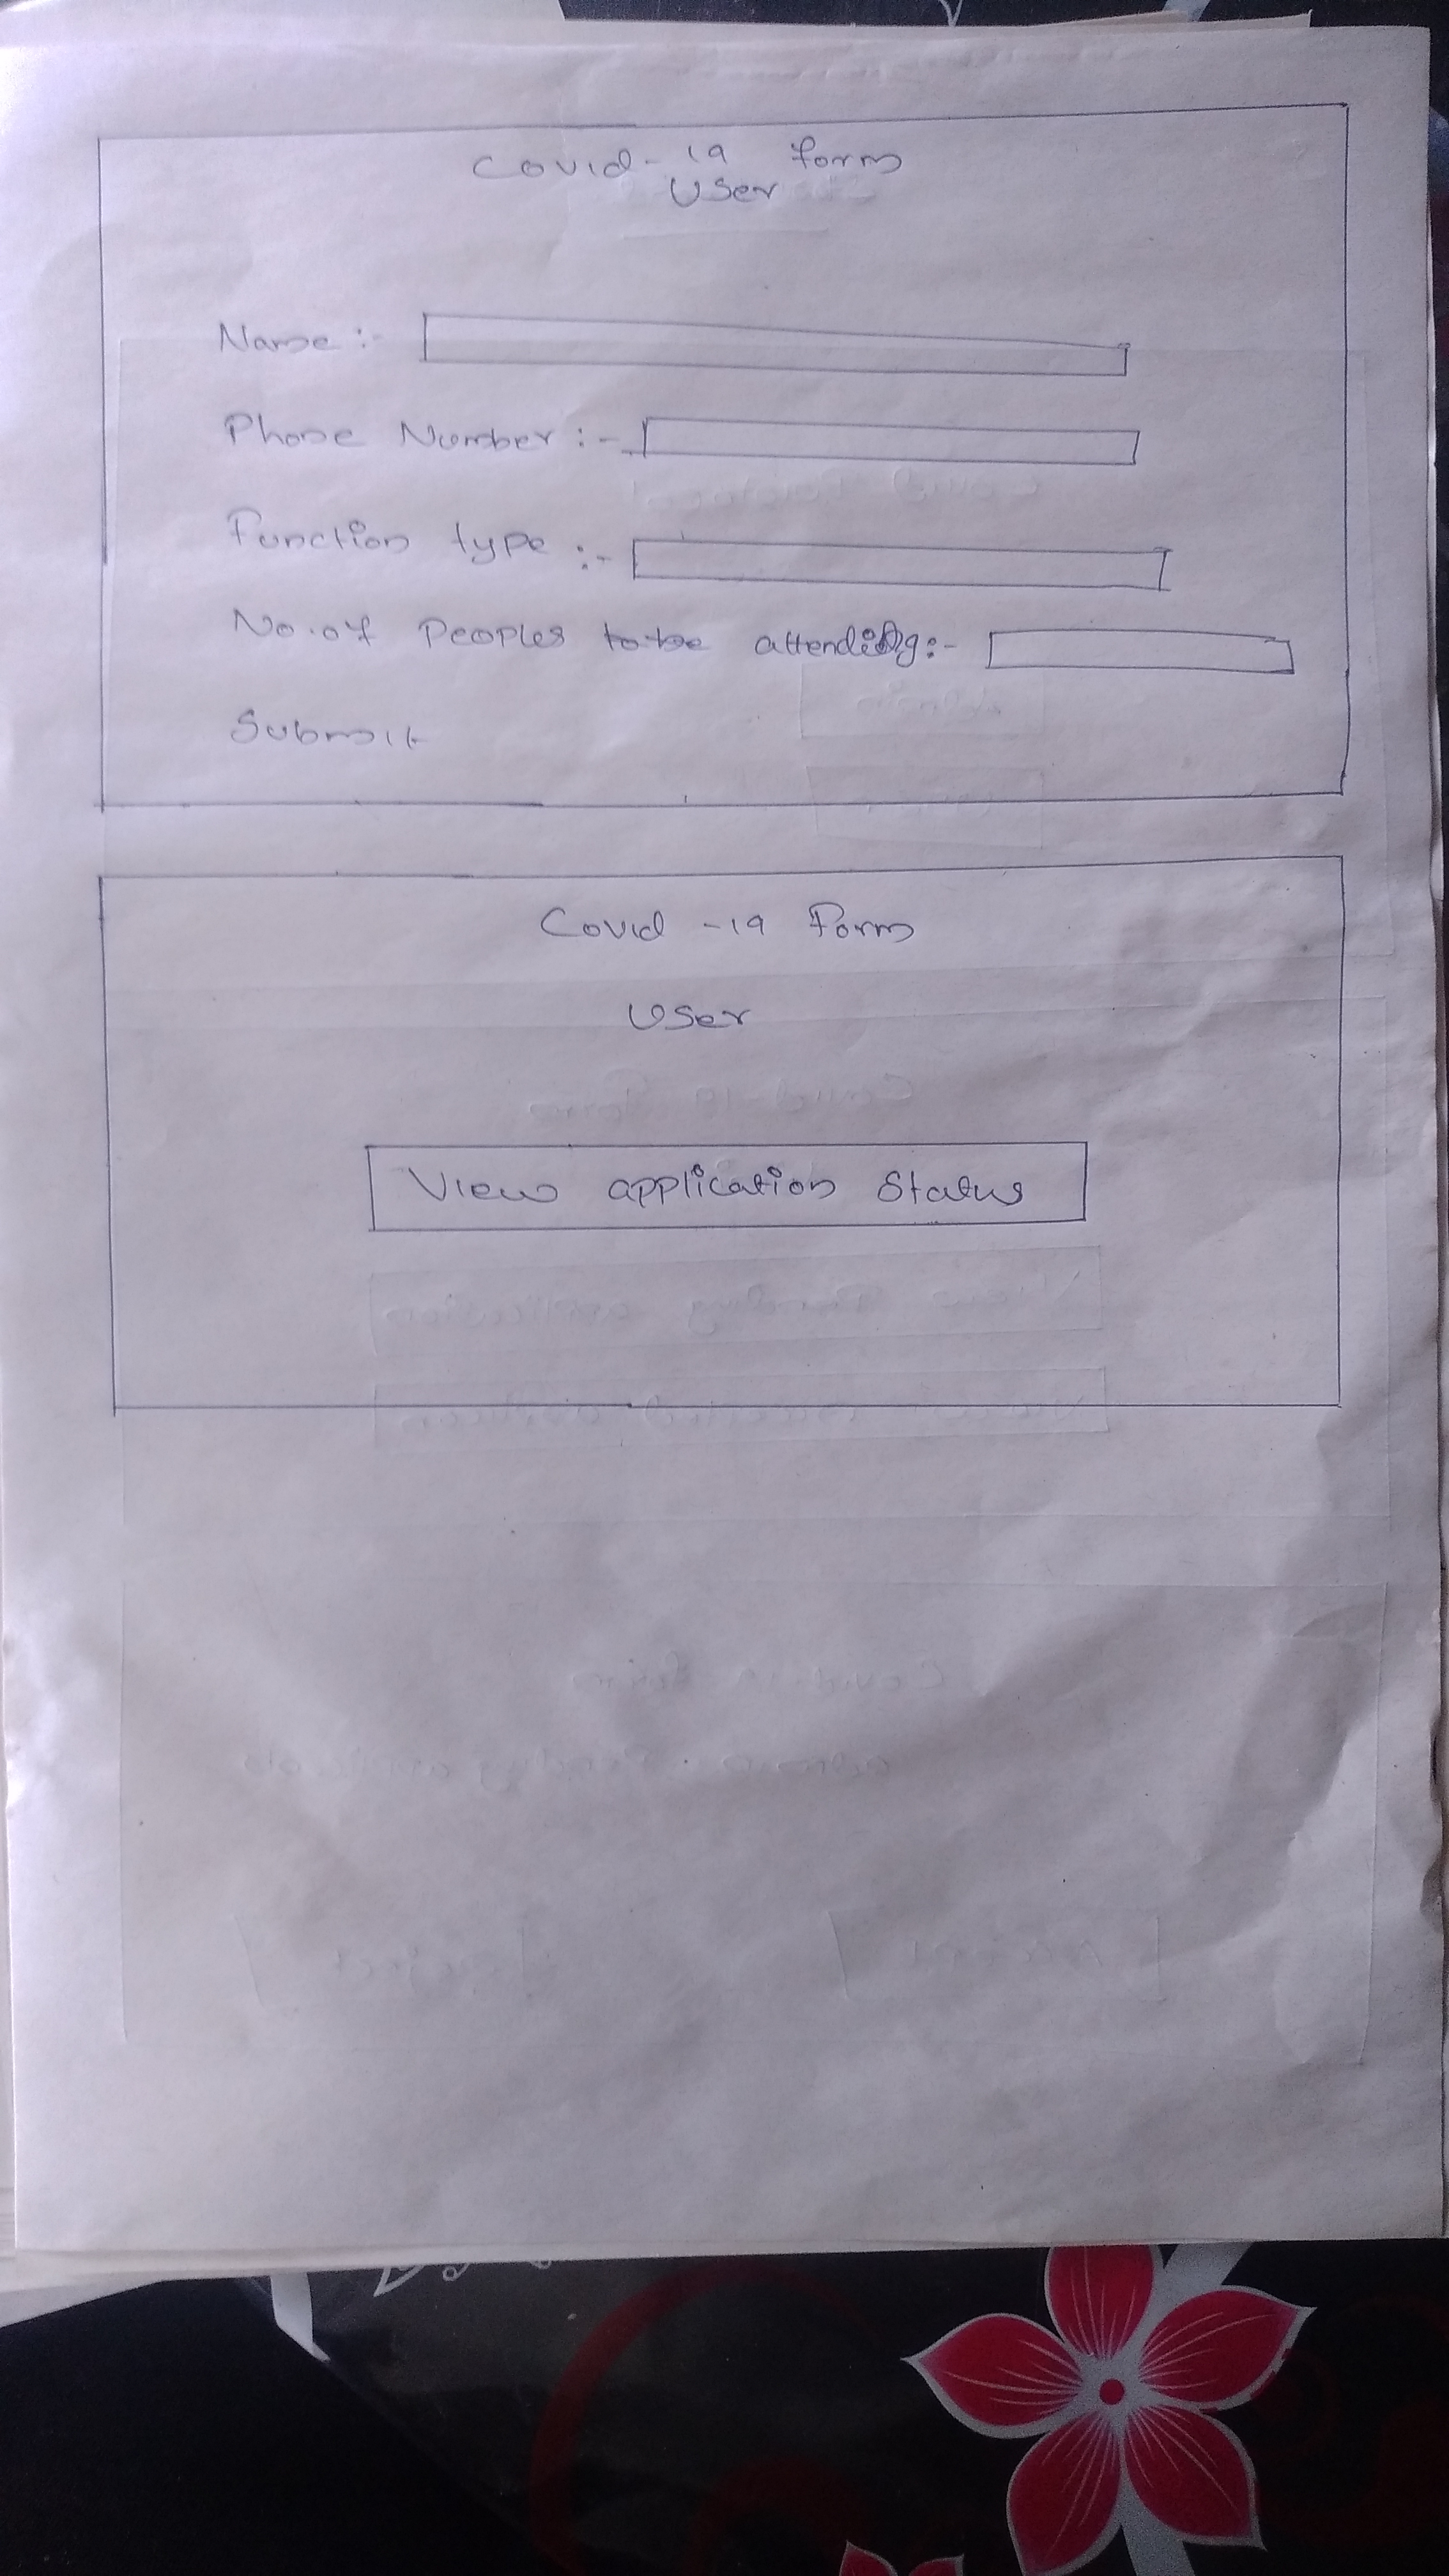 Covid-19 form
User
Name :-
Phone Number :-
Function type :-
No. of Peoples to be attending:-
Submit
Covid -19 Form
User
View application Status